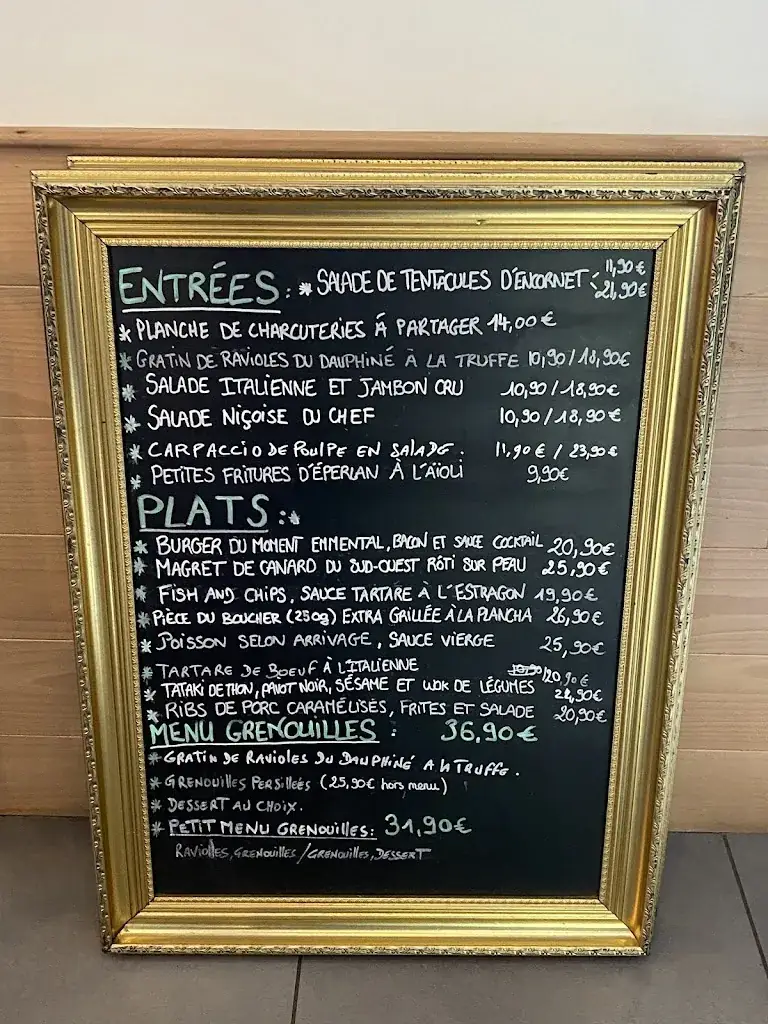 ENTRÉES : * SALADE DE TENTACULES D'ENCORNET : 11,90€
21,90€
* PLANCHE DE CHARCUTERIES À PARTAGER 14,00€
* GRATIN DE RAVIOLES DU DAUPHINÉ À LA TRUFFE 10,90/18,90€
* SALADE ITALIENNE ET JAMBON CRU 10,90/18,90€
* SALADE NIÇOISE DU CHEF 10,90/18,90€
* CARPACCIO DE POULPE EN SALADE. 11,90€ / 23,90€
* PETITES FRITURES D'ÉPERLAN À L'AÏOLI 9,90€
PLATS :*
* BURGER DU MOMENT EMMENTAL, BACON ET SAUCE COCKTAIL 20,90€
* MAGRET DE CANARD DU SUD-OUEST RÔTI SUR PEAU 25,90€
* FISH AND CHIPS, SAUCE TARTARE À L'ESTRAGON 19,90€
* PIÈCE DU BOUCHER (250g) EXTRA GRILLÉE À LA PLANCHA 26,90€
* POISSON SELON ARRIVAGE, SAUCE VIERGE 25,90€
* TARTARE DE BOEUF À L'ITALIENNE /20,90€
* TATAKI DE THON, PAVOT NOIR, SÉSAME ET WOK DE LÉGUMES
* RIBS DE PORC CARAMÉLISÉS, FRITES ET SALADE 20,90€
MENU GRENOUILLES : 36,90€
* GRATIN DE RAVIOLES DU DAUPHINÉ A LA TRUFFE.
* GRENOUILLES PERSILLEÉS (25,90€ hors menu)
* DESSERT AU CHOIX.
* PETIT MENU GRENOUILLES: 31,90€
RAVIOLES, GRENOUILLES / GRENOUILLES, DESSERT